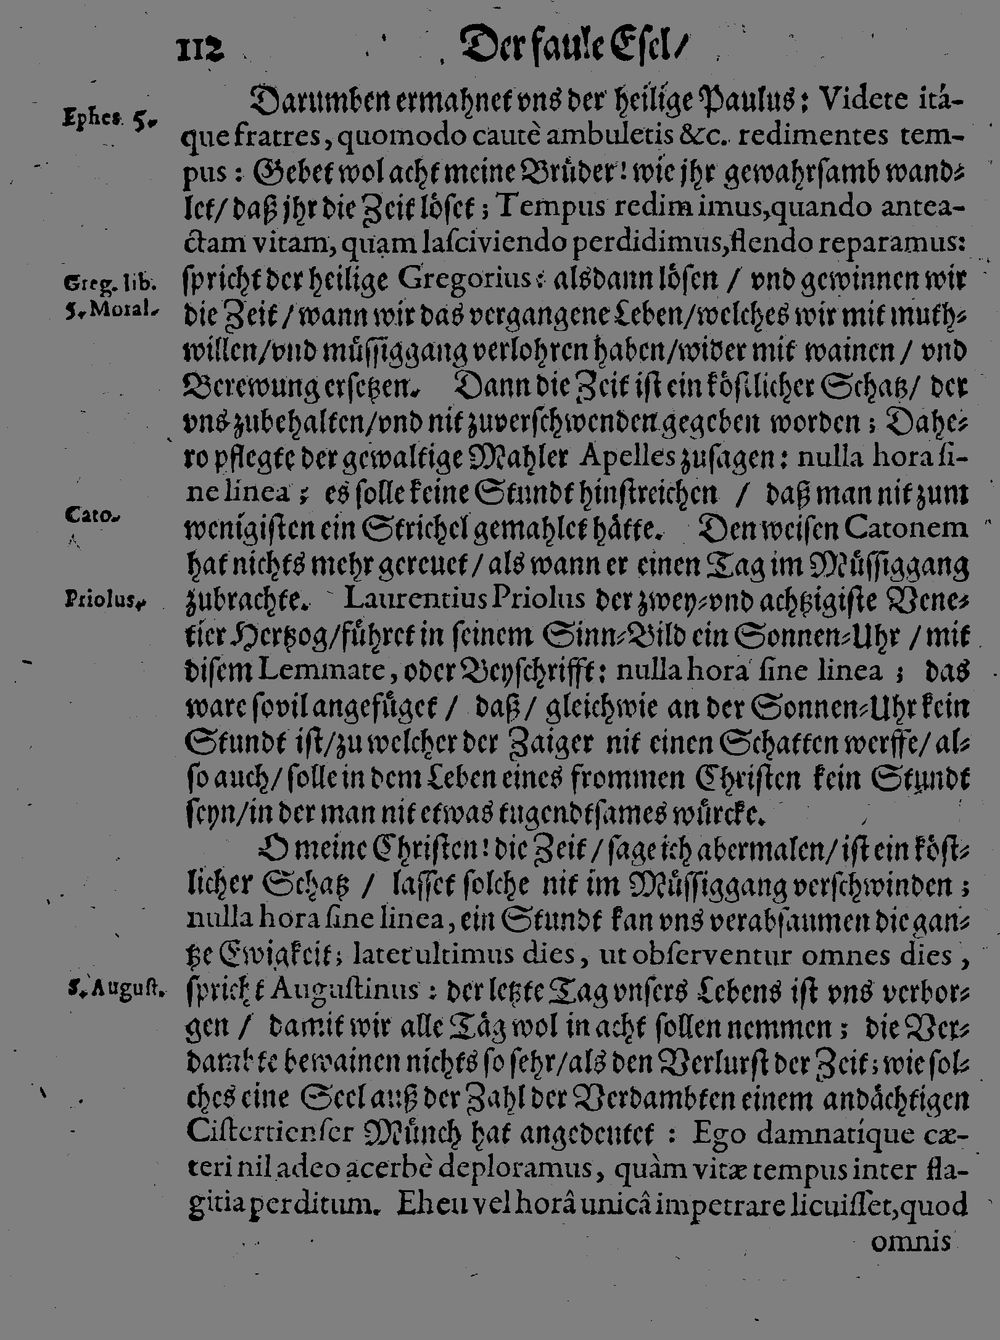 112 Der faule Esel/
Darumben ermahnet vns der heilige Paulus: Videte itá-
Ephes. 5.
que fratres, quomodo cautè ambuletis &c. redimentes tem-
pus: Gebet wol acht meine Brüder! wie jhr gewahrsamb wand-
let/ daß jhr die Zeit löset; Tempus redimimus, quando antea-
ctam vitam, quam lasciviendo perdidimus, flendo reparamus:
Greg. lib.
spricht der heilige Gregorius: alsdann lösen / vnd gewinnen wir
5. Moral.
die Zeit / wann wir das vergangene Leben/welches wir mit muth-
willen/vnd müssiggang verlohren haben/wider mit wainen / vnd
Berewung ersetzen. Dann die Zeit ist ein köstlicher Schatz/ der
vns zubehalten/vnd nit zuverschwenden gegeben worden; Dahe-
ro pflegte der gewaltige Mahler Apelles zusagen: nulla hora si-
ne linea; es solle keine Stundt hinstreichen / daß man nit zum
Cato.
wenigisten ein Strichel gemahlet hätte. Den weisen Catonem
hat nichts mehr gereuet/ als wann er einen Tag im Müssiggang
Priolus.
zubrachte. Laurentius Priolus der zwey-vnd achtzigiste Vene-
tier Hertzog/führet in seinem Sinn-Bild ein Sonnen-Uhr / mit
disem Lemmate, oder Beyschrifft: nulla hora sine linea; das
ware sovil angefüget / daß/ gleichwie an der Sonnen-Uhr kein
Stundt ist/zu welcher der Zaiger nit einen Schatten werffe/ al-
so auch/ solle in dem Leben eines frommen Christen kein Stundt
seyn/in der man nit etwas tugendtsames würcke.
O meine Christen! die Zeit / sage ich abermalen/ ist ein köst-
licher Schatz / lasset solche nit im Müssiggang verschwinden;
nulla hora sine linea, ein Stundt kan vns verabsaumen die gan-
tze Ewigkeit; latet ultimus dies, ut observentur omnes dies,
S. August.
spricht Augustinus: der letzte Tag vnsers Lebens ist vns verbor-
gen / damit wir alle Täg wol in acht sollen nemmen; die Ver-
dambte bewainen nichts so sehr/als den Verlurst der Zeit; wie sol-
ches eine Seel auß der Zahl der Verdambten einem andächtigen
Cistertienser Münch hat angedeutet: Ego damnatíque cæ-
teri nil adeo acerbè deploramus, quàm vitæ tempus inter fla-
gitia perditum. Eheu vel horâ unicâ impetrare licuisset, quod
omnis